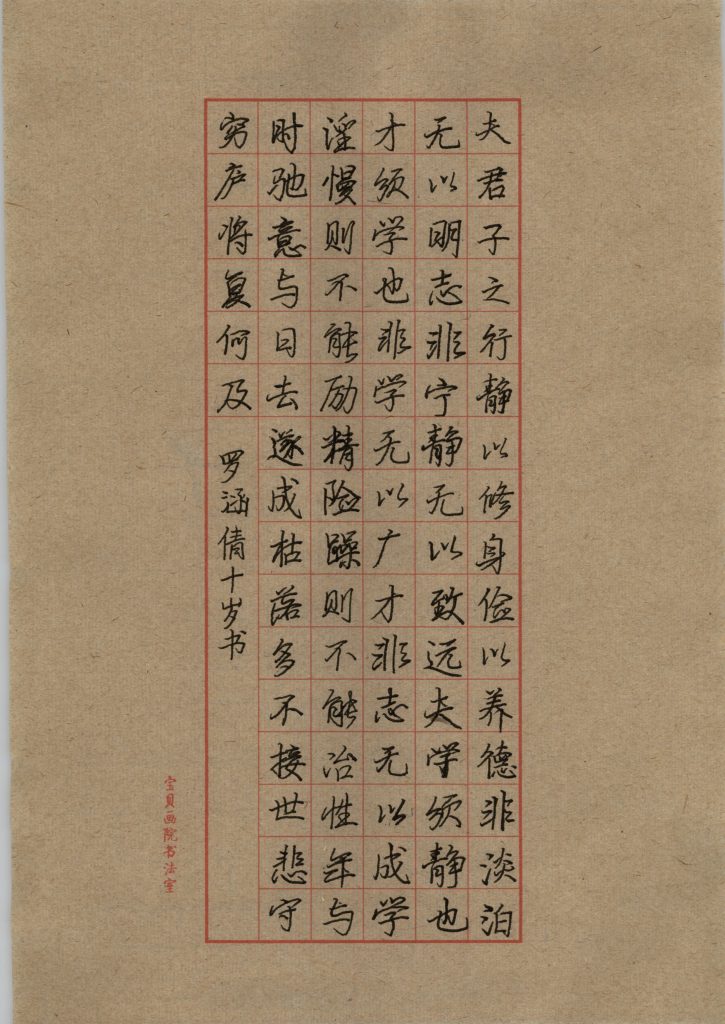 夫君子之行静以修身俭以养德非淡泊
无以明志非宁静无以致远夫学须静也
才须学也非学无以广才非志无以成学
淫慢则不能励精险躁则不能冶性年与
时驰意与日去遂成枯落多不接世悲守
穷庐将复何及
罗涵倩十岁书
宝贝画院书法室